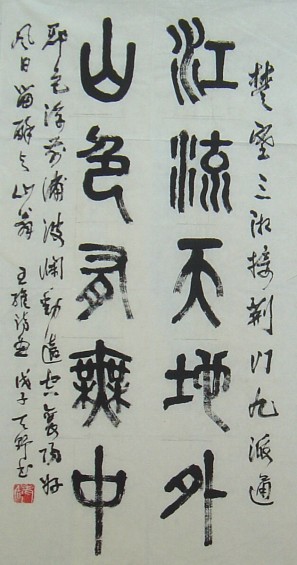 楚塞三湘接荆门九派通
江流天地外
山色有無中
郡邑浮前浦波澜動遠空襄陽好
风日留醉与山翁 王維詩 戊子 书